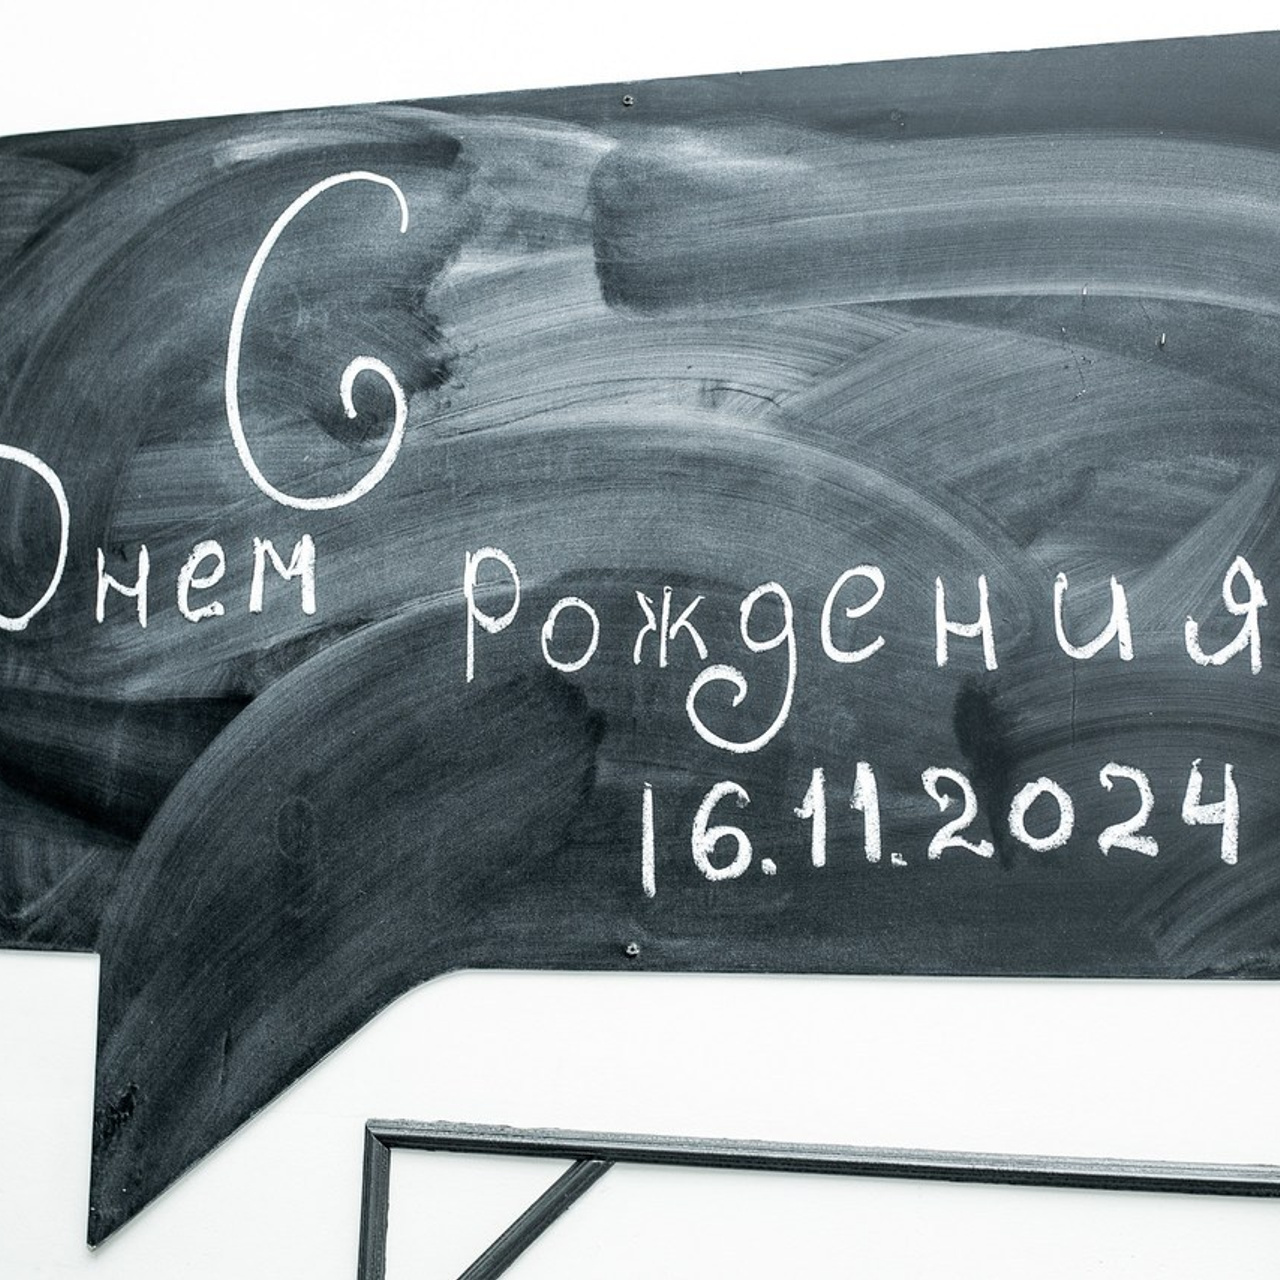 С
Днем рождения
16.11.2024